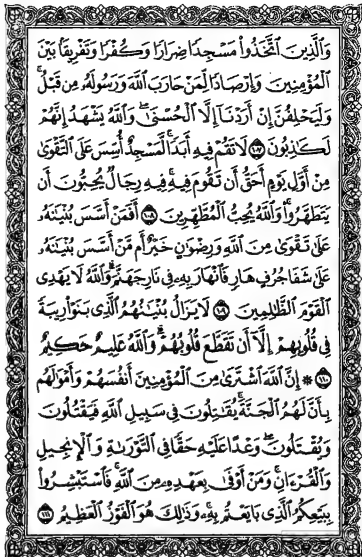 وَالَّذِينَ اتَّخَذُوا مَسْجِدًا ضِرَارًا وَكُفْرًا وَتَفْرِيقًا بَيْنَ
الْمُؤْمِنِينَ وَإِرْصَادًا لِمَنْ حَارَبَ اللَّهَ وَرَسُولَهُ مِن قَبْلُ
وَلَيَحْلِفُنَّ إِنْ أَرَدْنَا إِلَّا الْحُسْنَىٰ وَاللَّهُ يَشْهَدُ إِنَّهُمْ
لَكَاذِبُونَ ١٠٧ لَا تَقُمْ فِيهِ أَبَدًا لَّمَسْجِدٌ أُسِّسَ عَلَى التَّقْوَىٰ
مِنْ أَوَّلِ يَوْمٍ أَحَقُّ أَن تَقُومَ فِيهِ فِيهِ رِجَالٌ يُحِبُّونَ أَن
يَتَطَهَّرُوا وَاللَّهُ يُحِبُّ الْمُطَّهِّرِينَ ١٠٨ أَفَمَنْ أَسَّسَ بُنْيَانَهُ
عَلَىٰ تَقْوَىٰ مِنَ اللَّهِ وَرِضْوَانٍ خَيْرٌ أَم مَّنْ أَسَّسَ بُنْيَانَهُ
عَلَىٰ شَفَا جُرُفٍ هَارٍ فَانْهَارَ بِهِ فِي نَارِ جَهَنَّمَ وَاللَّهُ لَا يَهْدِي
الْقَوْمَ الظَّالِمِينَ ١٠٩ لَا يَزَالُ بُنْيَانُهُمُ الَّذِي بَنَوْا رِيبَةً
فِي قُلُوبِهِمْ إِلَّا أَن تَقَطَّعَ قُلُوبُهُمْ وَاللَّهُ عَلِيمٌ حَكِيمٌ
١١٠ ۞ إِنَّ اللَّهَ اشْتَرَىٰ مِنَ الْمُؤْمِنِينَ أَنفُسَهُمْ وَأَمْوَالَهُم
بِأَنَّ لَهُمُ الْجَنَّةَ يُقَاتِلُونَ فِي سَبِيلِ اللَّهِ فَيَقْتُلُونَ
وَيُقْتَلُونَ وَعْدًا عَلَيْهِ حَقًّا فِي التَّوْرَاةِ وَالْإِنجِيلِ
وَالْقُرْآنِ وَمَنْ أَوْفَىٰ بِعَهْدِهِ مِنَ اللَّهِ فَاسْتَبْشِرُوا
بِبَيْعِكُمُ الَّذِي بَايَعْتُم بِهِ وَذَٰلِكَ هُوَ الْفَوْزُ الْعَظِيمُ ١١١